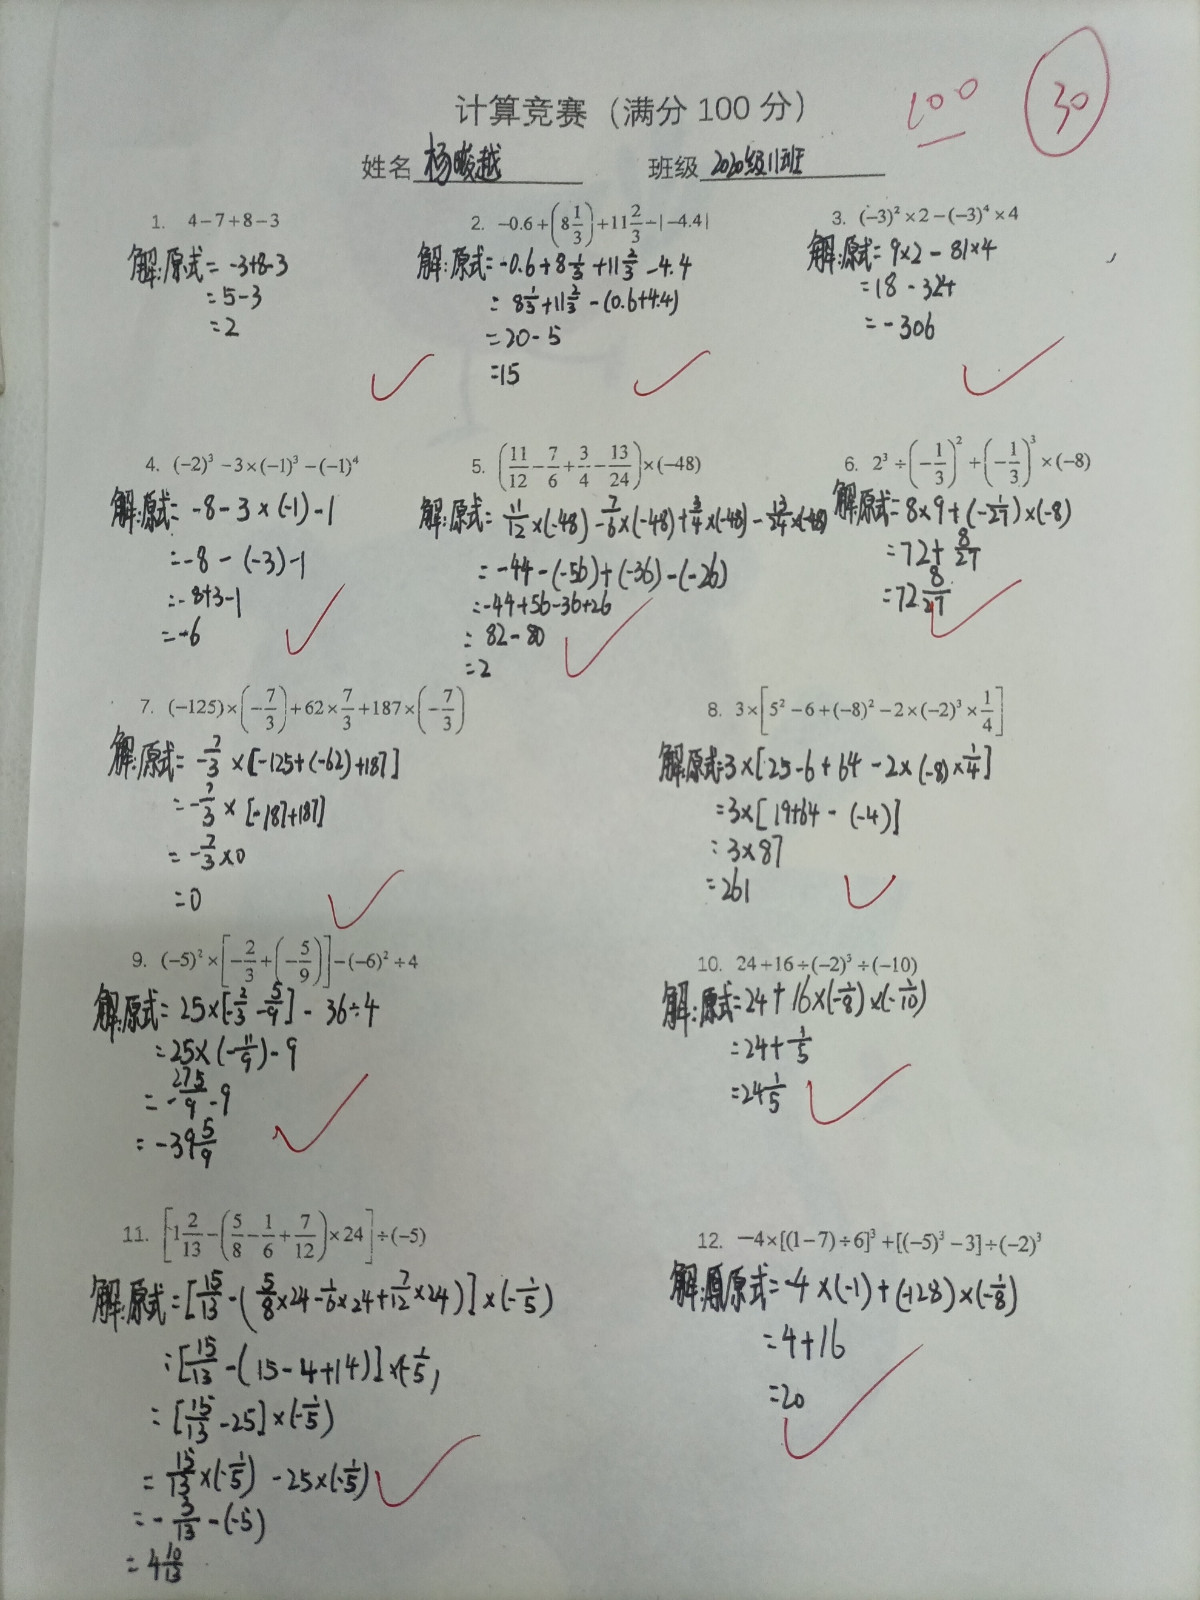 计算竞赛（满分 100 分） 100 30
姓名 杨畯越 班级 2020级11班
1. 4-7+8-3
解:原式= -3+8-3
=5-3
=2
2. -0.6+(8 1/3)+11 2/3-|-4.4|
解:原式=-0.6+8 1/3+11 2/3-4.4
= 8 1/3+11 2/3-(0.6+4.4)
=20-5
=15
3. (-3)²×2-(-3)⁴×4
解:原式=9×2-81×4
=18-324
=-306
4. (-2)³-3×(-1)³-(-1)⁴
解:原式= -8-3×(-1)-1
=-8-(-3)-1
=-8+3-1
=-6
5. (11/12-7/6+3/4-13/24)×(-48)
解:原式= 11/12×(-48)-7/6×(-48)+3/4×(-48)-13/24×(-48)
=-44-(-56)+(-36)-(-26)
=-44+56-36+26
= 82-80
=2
6. 2³÷(-1/3)²+(-1/3)³×(-8)
解:原式=8×9+(-1/27)×(-8)
=72+8/27
=72 8/27
7. (-125)×(-7/3)+62×7/3+187×(-7/3)
解:原式= -7/3×[-125+(-62)+187]
=-7/3×[-187+187]
=-7/3×0
=0
8. 3×[5²-6+(-8)²-2×(-2)³×1/4]
解:原式=3×[25-6+64-2×(-8)×1/4]
=3×[19+64-(-4)]
=3×87
=261
9. (-5)²×[-2/3+(-5/9)]-(-6)²÷4
解:原式=25×[-2/3-5/9]-36÷4
=25×(-11/9)-9
=-275/9-9
=-39 5/9
10. 24+16÷(-2)³÷(-10)
解:原式=24+16×(-1/8)×(-1/10)
=24+1/5
=24 1/5
11. [1 2/13-(5/8-1/6+7/12)×24]÷(-5)
解:原式=[15/13-(5/8×24-1/6×24+7/12×24)]×(-1/5)
=[15/13-(15-4+14)]×(-1/5)
=[15/13-25]×(-1/5)
=15/13×(-1/5)-25×(-1/5)
=-3/13-(-5)
=4 10/13
12. -4×[(1-7)÷6]³+[(-5)³-3]÷(-2)³
解:原式=-4×(-1)+(-128)×(-1/8)
=4+16
=20